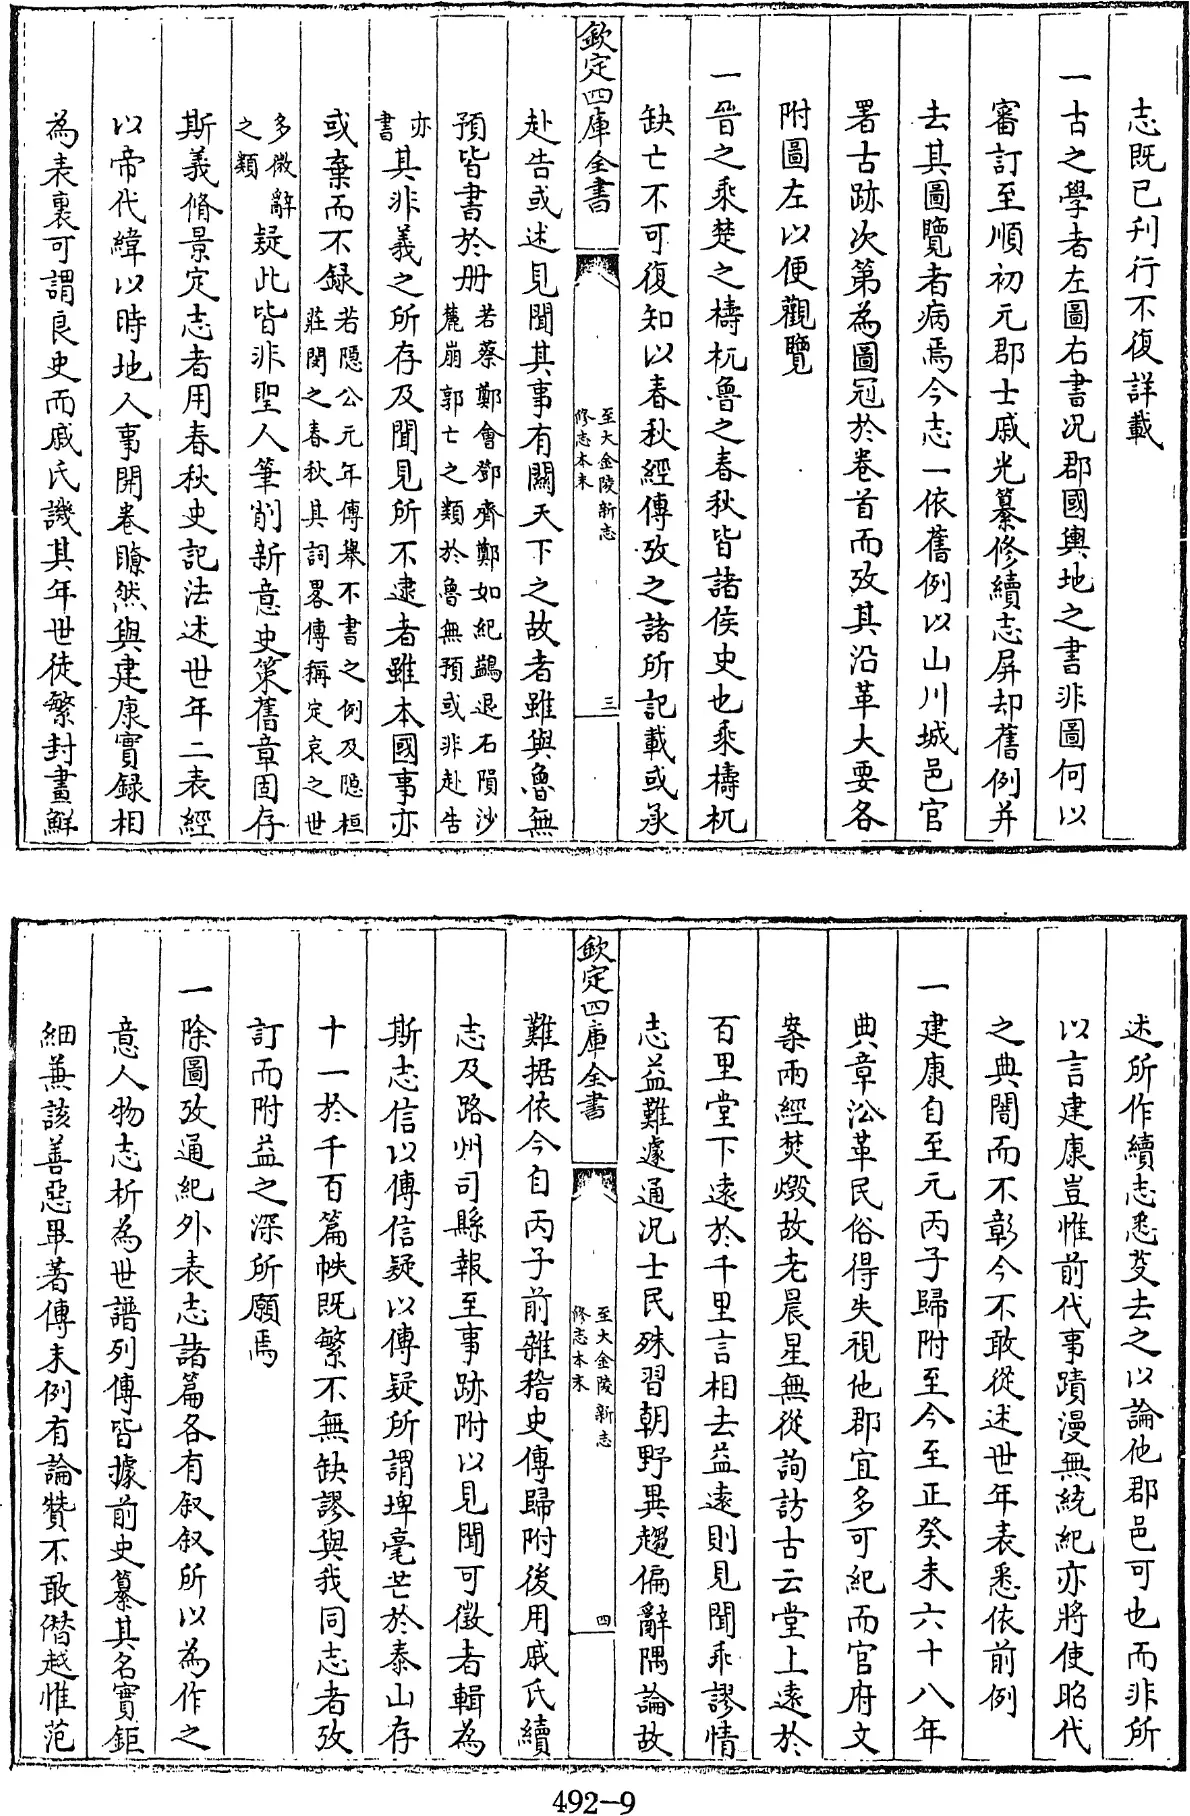 志既已刋行不復詳載
一古之學者左圖右書况郡國輿地之書非圖何以
審訂至順初元郡士戚光纂修續志屏却舊例并
去其圖覽者病焉今志一依舊例以山川城邑官
署古跡次第為圖冠於卷首而攷其沿革大要各
附圖左以便觀覽
一晉之乘楚之檮杌魯之春秋皆諸侯史也乘檮杌
缺亡不可復知以春秋經傳攷之諸所記載或承
欽定四庫全書
至大金陵新志
修志本末
三
赴告或述見聞其事有關天下之故者雖與魯無
預皆書於册若蔡鄭會鄧齊鄭如紀鷁退石隕沙
麓崩郭亡之類於魯無預或非赴告
亦
書其非義之所存及聞見所不逮者雖本國事亦
或棄而不録若隱公元年傳舉不書之例及隱桓
莊閔之春秋其詞畧傳稱定哀之世
多微辭
之類疑此皆非聖人筆削新意史策舊章固存
斯義脩景定志者用春秋史記法述世年二表經
以帝代緯以時地人事開卷瞭然與建康實録相
為表裏可謂良史而戚氏譏其年世徒繁封畫鮮
述所作續志悉芟去之以論他郡邑可也而非所
以言建康豈惟前代事蹟漫無統紀亦將使昭代
之典闇而不彰今不敢從述世年表悉依前例
一建康自至元丙子歸附至今至正癸未六十八年
典章沿革民俗得失視他郡宜多可紀而官府文
案兩經焚燬故老晨星無從詢訪古云堂上遠於
百里堂下遠於千里言相去益遠則見聞乖謬情
志益難遽通况士民殊習朝野異趨偏辭隅論故
欽定四庫全書
至大金陵新志
修志本末
四
難据依今自丙子前雜稽史傳歸附後用戚氏續
志及路州司縣報至事跡附以見聞可徵者輯為
斯志信以傳信疑以傳疑所謂埤毫芒於泰山存
十一於千百篇帙既繁不無缺謬與我同志者攷
訂而附益之深所願焉
一除圖攷通紀外表志諸篇各有叙叙所以為作之
意人物志析為世譜列傳皆據前史纂其名實鉅
細兼該善惡畢著傳末例有論贊不敢僭越惟范
492-9